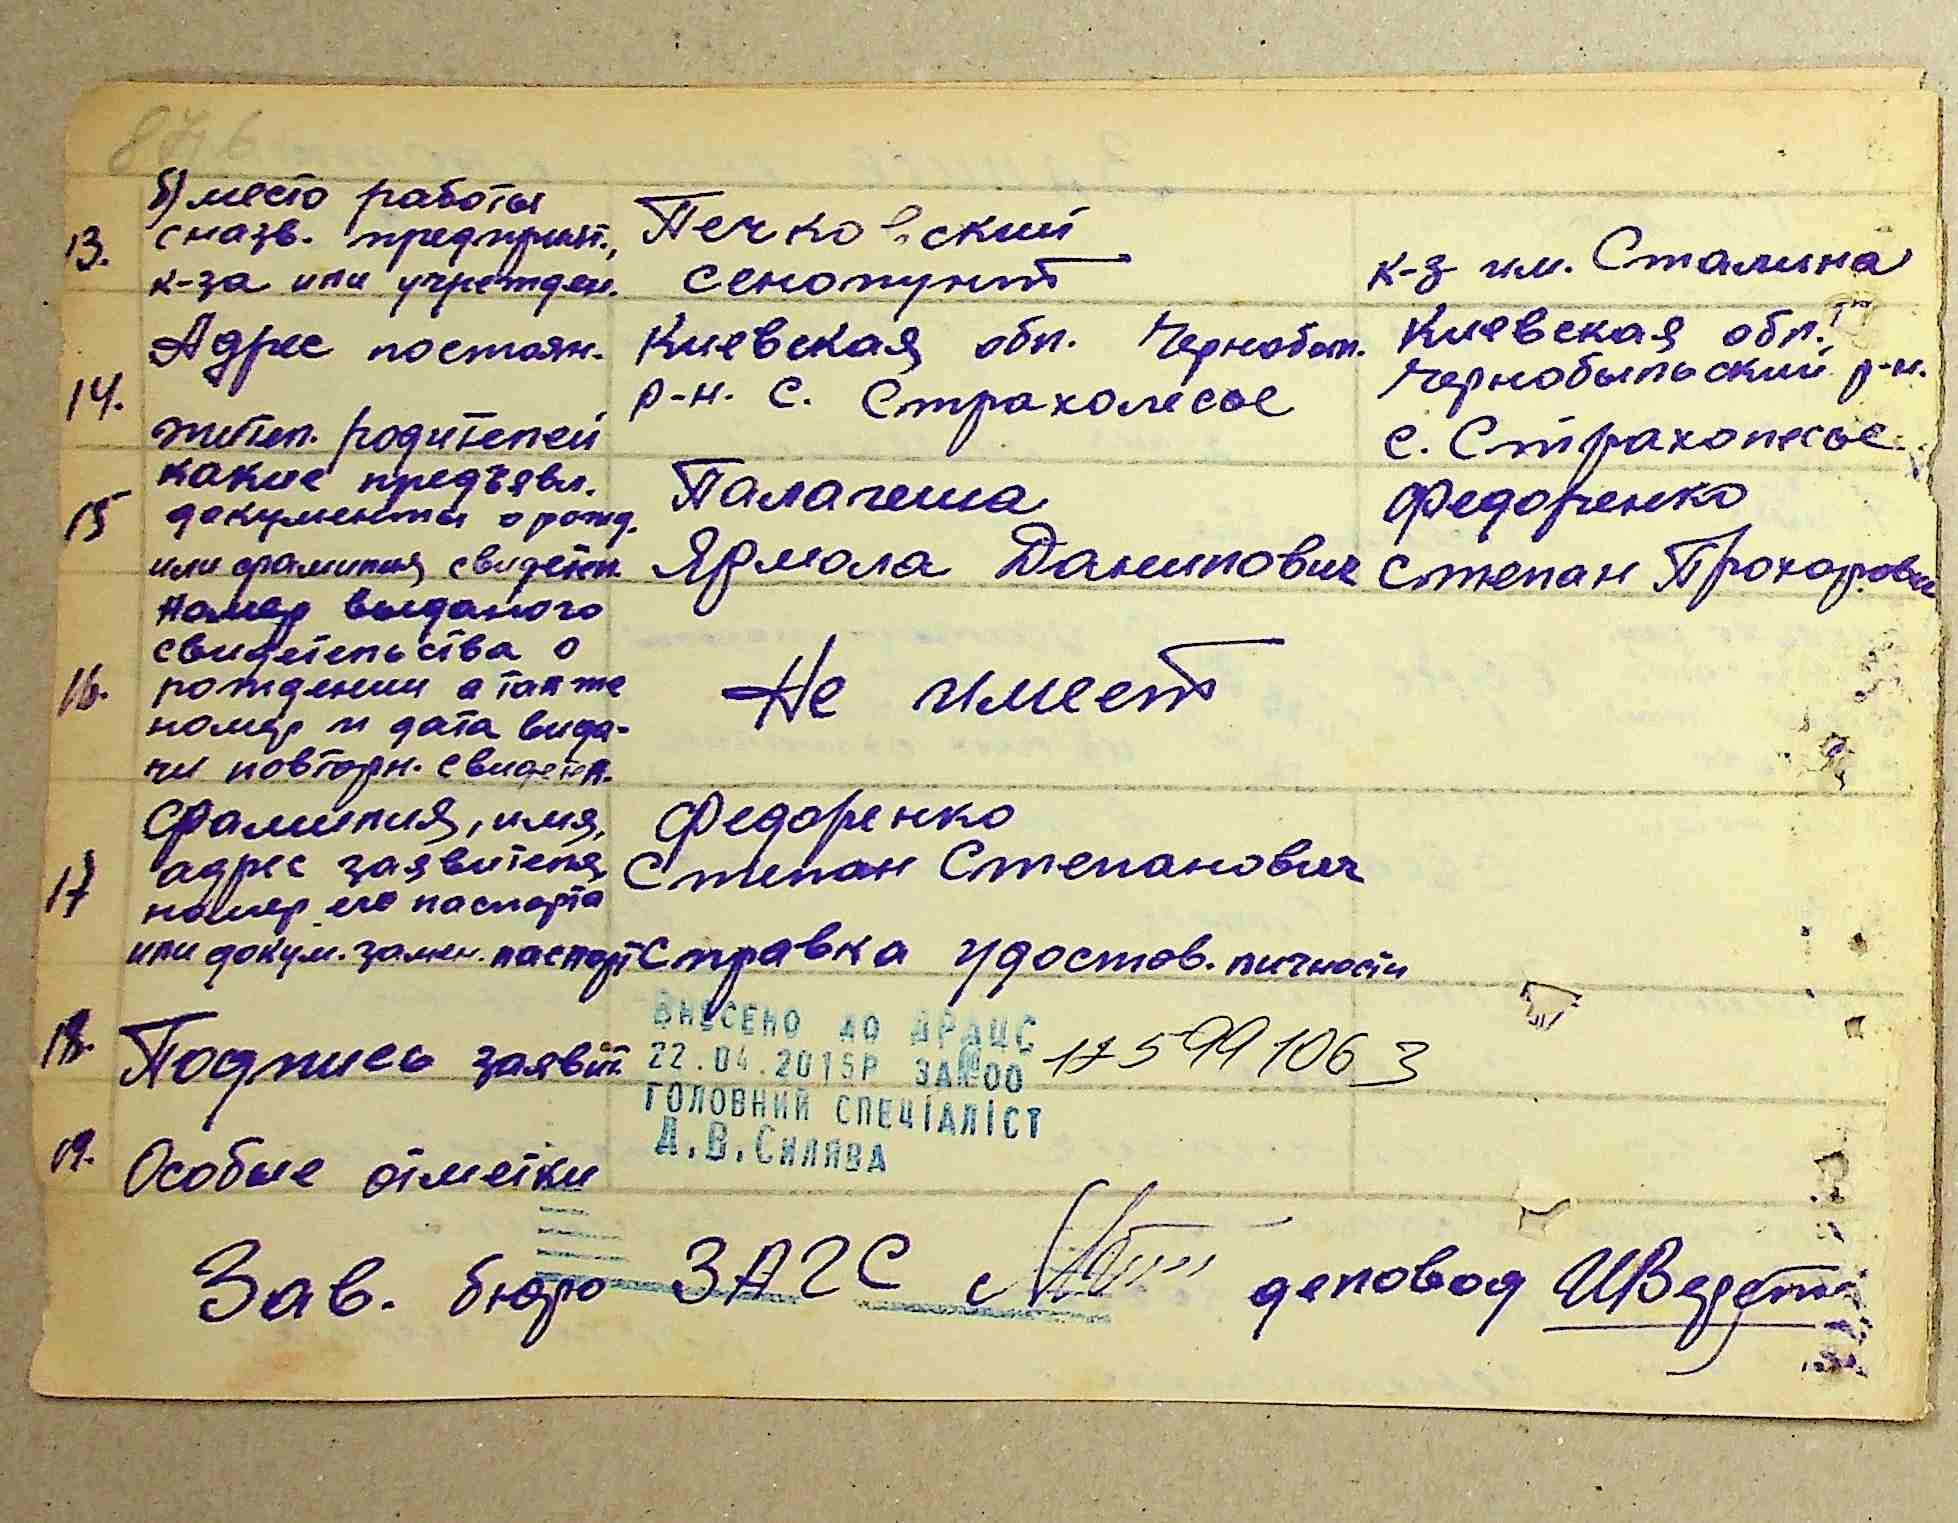 876
б) место работы
13. с назв. предприят., Печковский
к-за или учрежден. сенопункт к-з им. Сталина
Адрес постоян. Киевская обл. Чернобыл. Киевская обл.
14. р-н. с. Страхолесье Чернобыльский р-н.
жител. родителей с. Страхолесье
какие предъявл. Палачеша Федоренко
15 документы о рожд.
или фамилия свидетел. Ярмола Данилович Степан Прохорович
номер выданого
свидетельства о
16. рождении а также Не имеет
номер и дата выда-
чи повторн. свидетел.
Фамилия, имя, Федоренко
17 адрес заявителя Степан Степанович
номер его паспорта
или докум. замен. паспорт Справка удостов. личности
ВНЕСЕНО ДО ДРАЦС
18. Подпись заявит. 22.04.2015Р ЗА№00 17599 1063
ГОЛОВНИЙ СПЕЦІАЛІСТ
Д.В.СИЛЯВА
19. Особые отметки
Зав. бюро ЗАГС деловод